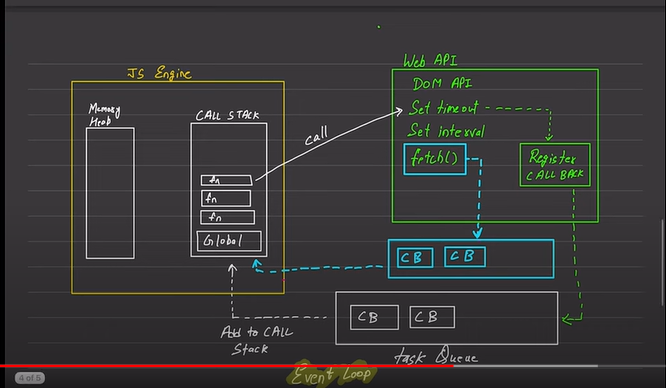 JS Engine
Memory
Heap
CALL STACK
fn
fn
fn
Global
call
Web API
DOM API
Set timeout
Set interval
fetch()
Register
CALL BACK
CB
CB
CB
CB
Add to CALL
Stack
task Queue
Event Loop
4 of 5